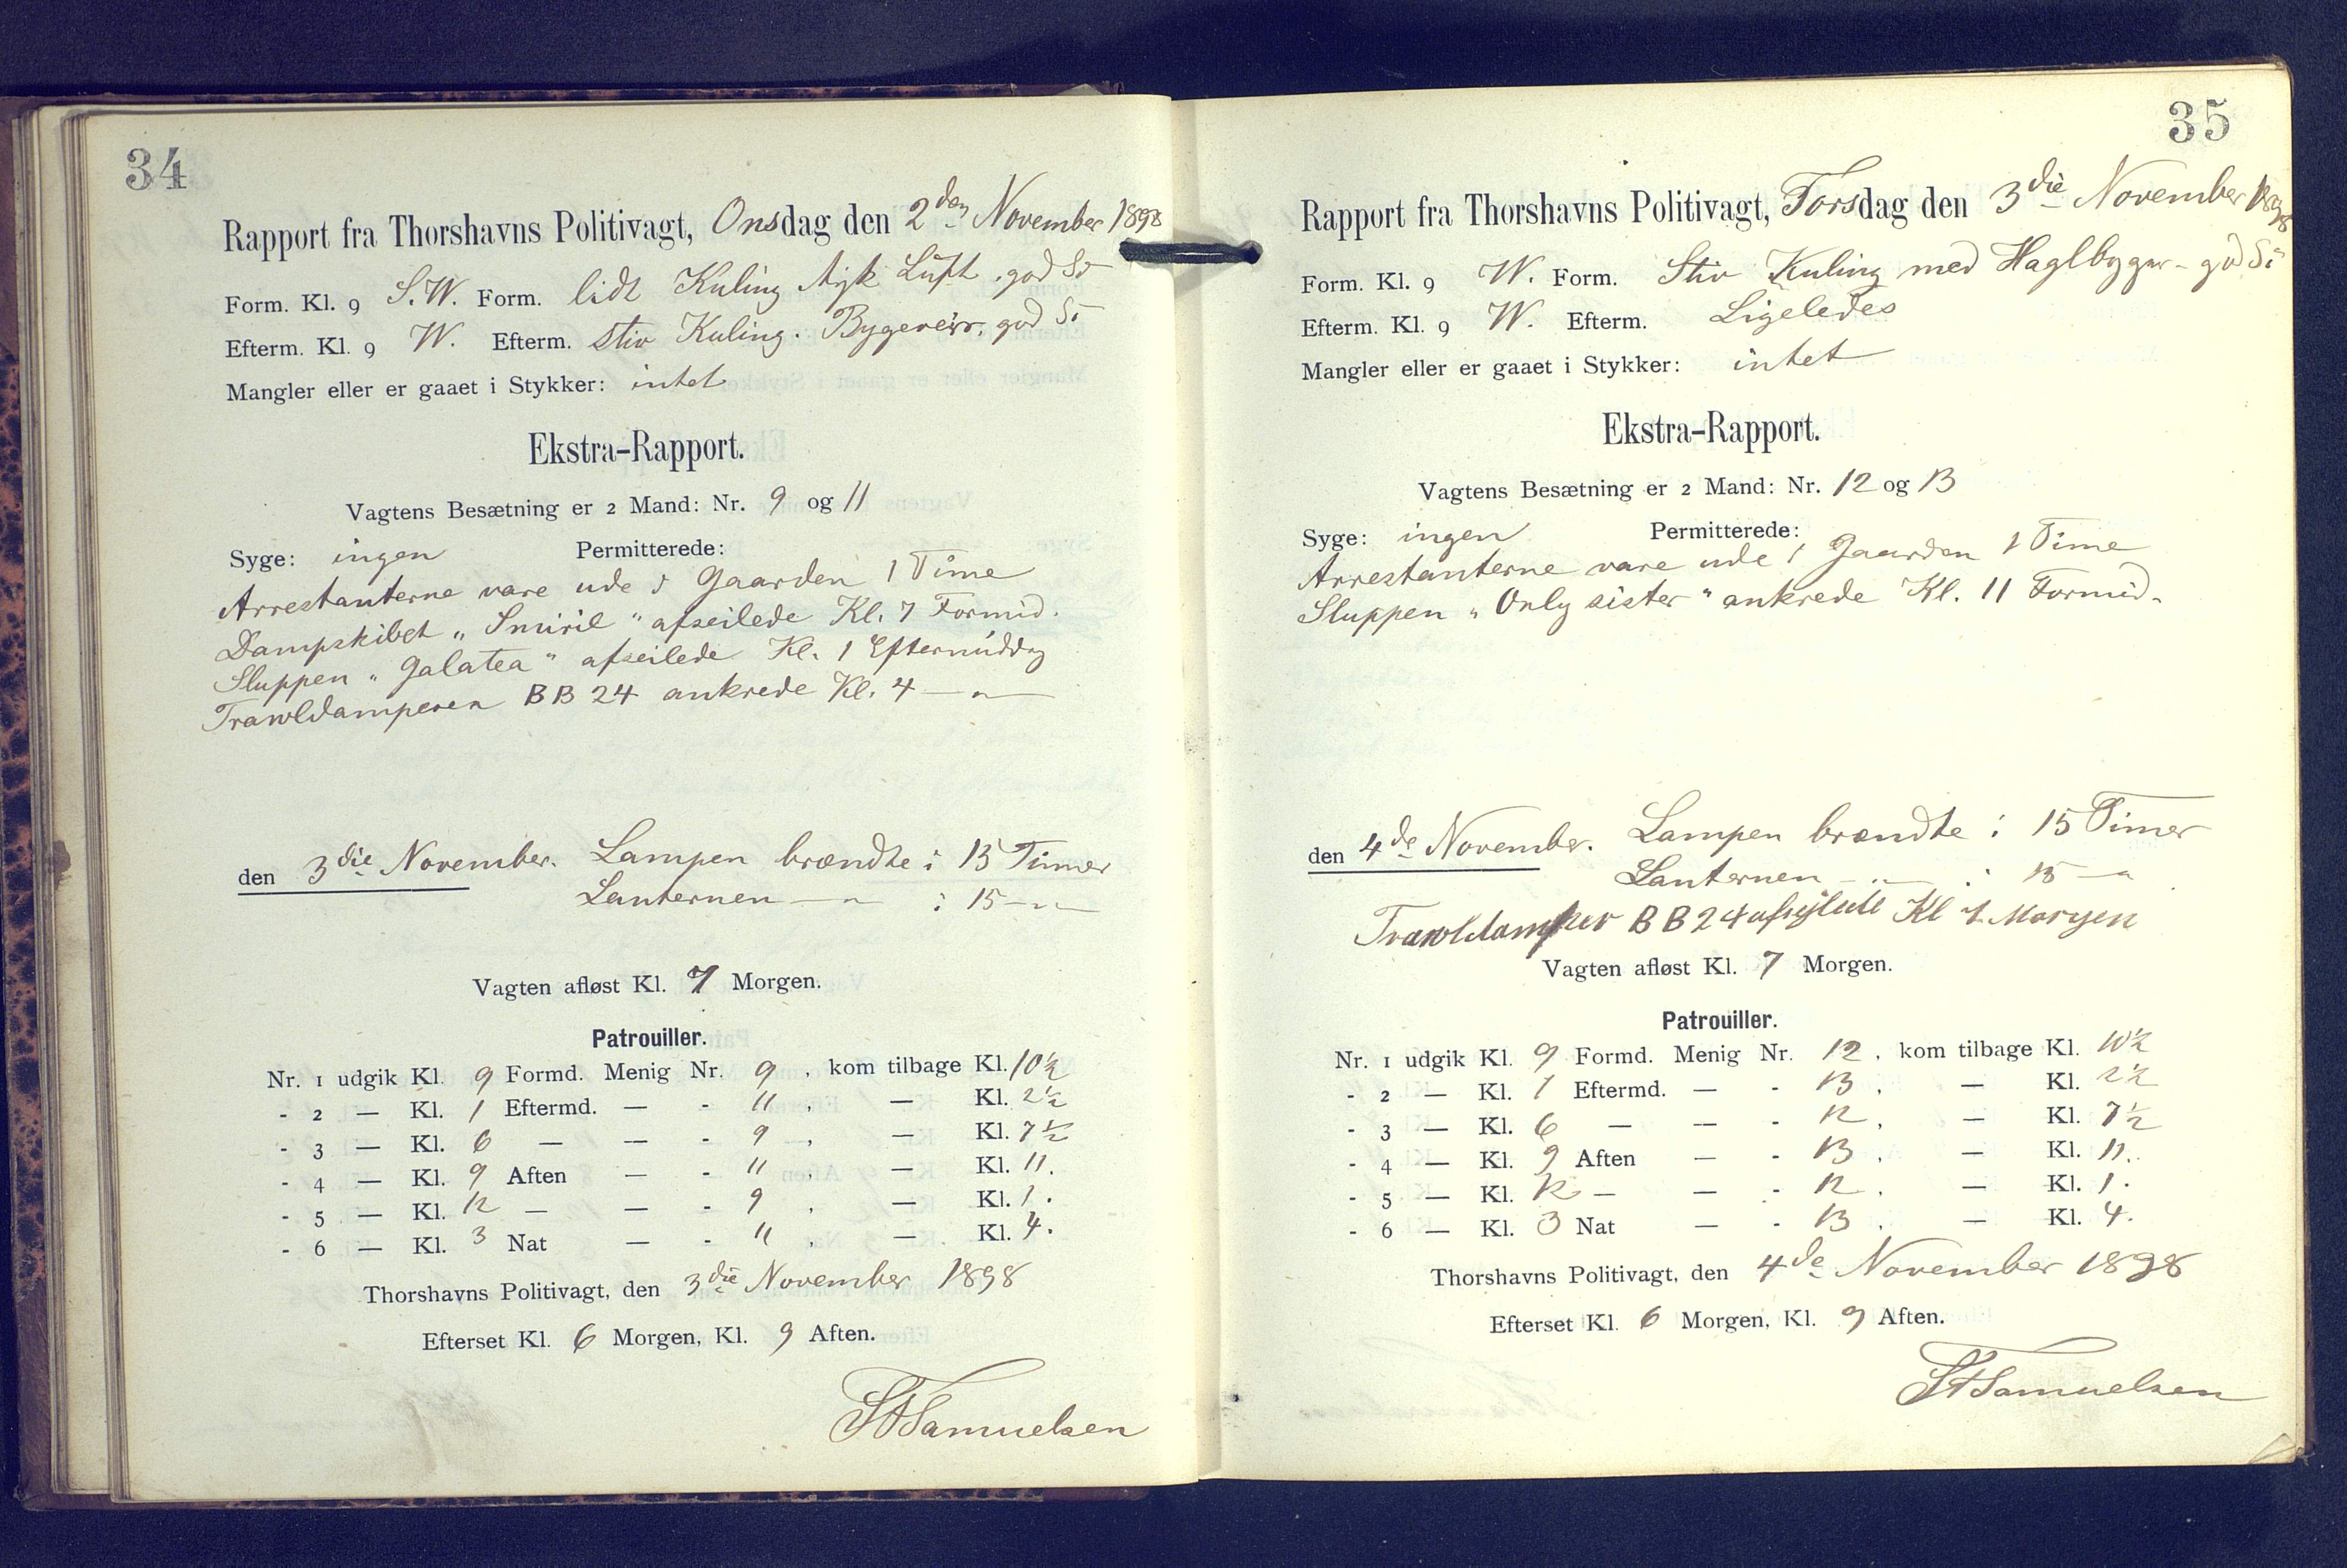 34
Rapport fra Thorshavns Politivagt, Onsdag den 2den November 1898
Form. Kl. 9 S.W. Form. lidt Kuling tyk Luft. god Sö
Efterm. Kl. 9 W. Efterm. Stiv Kuling. Bygeveir. god Sö
Mangler eller er gaaet i Stykker: intet
Ekstra-Rapport.
Vagtens Besætning er 2 Mand: Nr. 9 og 11
Syge: ingen Permitterede:
Arrestanterne vare ude i Gaarden 1 Time
Dampskibet „Smiril“ afseilede Kl. 7 Formid.
Sluppen „Galatea“ afseilede Kl. 1 Eftermiddag
Trawldamperen BB 24 ankrede Kl. 4 — " —
den 3die November. Lampen brændte i 15 Timer
Lanternen — " — i 15 — " —
Vagten afløst Kl. 7 Morgen.
Patrouiller.
Nr. 1 udgik Kl. 9 Formd. Menig Nr. 9, kom tilbage Kl. 10½
- 2 — Kl. 1 Eftermd. — - 11, — Kl. 2½
- 3 — Kl. 6 — — - 9, — Kl. 7½
- 4 — Kl. 9 Aften — - 11, — Kl. 11.
- 5 — Kl. 12 — — - 9, — Kl. 1.
- 6 — Kl. 3 Nat — - 11, — Kl. 4.
Thorshavns Politivagt, den 3die November 1898
Efterset Kl. 6 Morgen, Kl. 9 Aften.
Samuelsen
35
Rapport fra Thorshavns Politivagt, Torsdag den 3die November 1898
Form. Kl. 9 W. Form. Stiv Kuling med Haglbyger - god Sö
Efterm. Kl. 9 W. Efterm. Ligeledes
Mangler eller er gaaet i Stykker: intet
Ekstra-Rapport.
Vagtens Besætning er 2 Mand: Nr. 12 og 13
Syge: ingen Permitterede:
Arrestanterne vare ude i Gaarden 1 Time
Sluppen „Only sister“ ankrede Kl. 11 Formid.
den 4de November. Lampen brændte i 15 Timer
Lanternen — " — i 15 — "
Trawldamper BB 24 afsejlede Kl 1 Morgen
Vagten afløst Kl. 7 Morgen.
Patrouiller.
Nr. 1 udgik Kl. 9 Formd. Menig Nr. 12, kom tilbage Kl. 10½
- 2 — Kl. 1 Eftermd. — - 13, — Kl. 2½
- 3 — Kl. 6 — — - 12, — Kl. 7½
- 4 — Kl. 9 Aften — - 13, — Kl. 11.
- 5 — Kl. 12 — — - 12, — Kl. 1.
- 6 — Kl. 3 Nat — - 13, — Kl. 4.
Thorshavns Politivagt, den 4de November 1898
Efterset Kl. 6 Morgen, Kl. 9 Aften.
Samuelsen